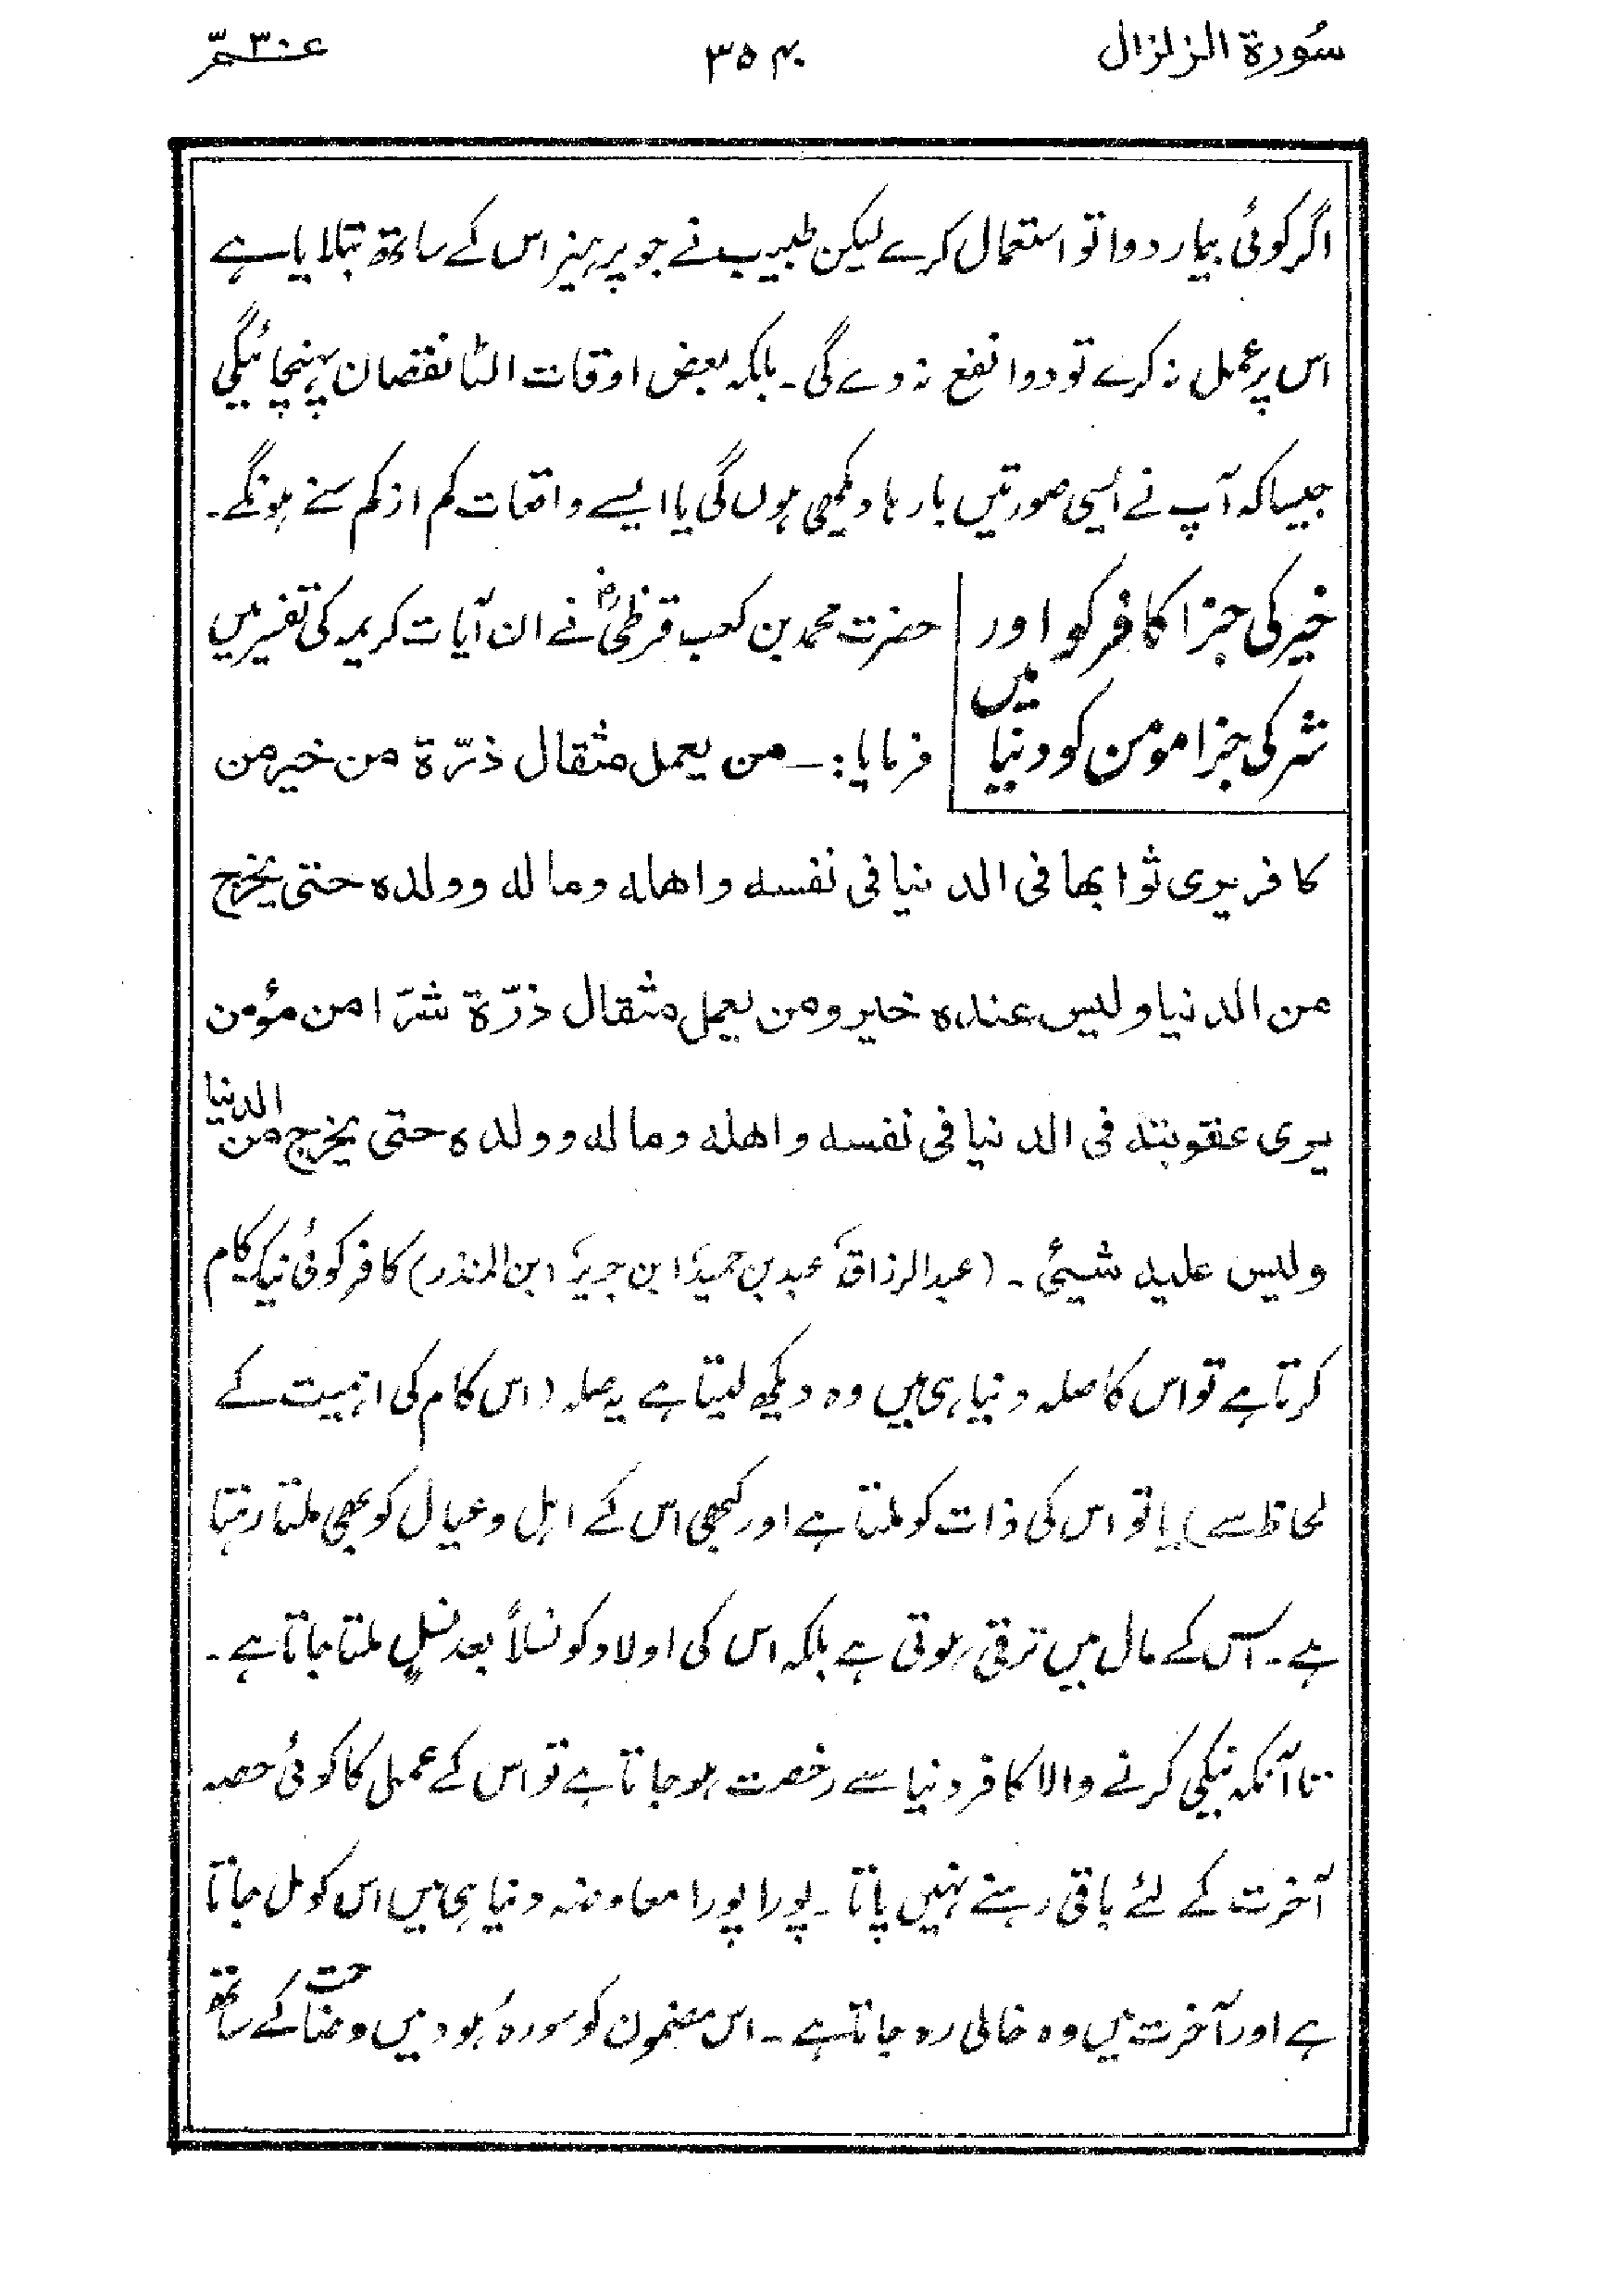 سُورة الزلزال ۳۵۴ عۤـم۳۰
اگر کوئی بیمار دوا تو استعمال کرے لیکن طبیب نے جو پرہیز اس کے ساتھ بتلایا ہے
اس پر عمل نہ کرے تو دوا نفع نہ دے گی۔ بلکہ بعض اوقات الٹا نقصان پہنچائیگی
جیسا کہ آپ نے ایسی صورتیں بارہا دیکھی ہوں گی یا ایسے واقعات کم از کم سنے ہونگے۔
خیر کی جزا کافر کو اور حضرت محمد بن کعب قرظیؓ نے ان آیات کریمہ کی تفسیر میں
شر کی جزا مومن کو دنیا میں فرمایا:۔ من یعمل مثقال ذرّة من خیر من
کافر یری ثوابها فی الدنیا فی نفسه و اهله و ماله و ولده حتی یخرج
من الدنیا و لیس عنده خیر و من یعمل مثقال ذرّة شرّا من مؤمن
یری عقوبته فی الدنیا فی نفسه و اهله و ماله و ولده حتی یخرج من الدنیا
و لیس علیه شیئی۔ (عبدالرزاق، عبد بن حمید، ابن جریر، ابن المنذر) کافر کوئی نیک کام
کرتا ہے تو اس کا صلہ دنیا ہی میں وہ دیکھ لیتا ہے یہ صلہ (اس کام کی اہمیت کے
لحاظ سے) یا تو اس کی ذات کو ملتا ہے اور کبھی اس کے اہل و عیال کو بھی ملتا رہتا
ہے۔ اس کے مال میں ترقی ہوتی ہے بلکہ اس کی اولاد کو نسلاً بعد نسلٍ ملتا جاتا ہے۔
تا آنکہ نیکی کرنے والا کافر دنیا سے رخصت ہو جاتا ہے تو اس کے عمل کا کوئی حصہ
آخرت کے لئے باقی رہنے نہیں پاتا۔ پورا پورا معاوضہ دنیا ہی میں اس کو مل جاتا
ہے اور آخرت میں وہ خالی رہ جاتا ہے۔ اس مضمون کو سورۂ ہود میں وضاحت کے ساتھ